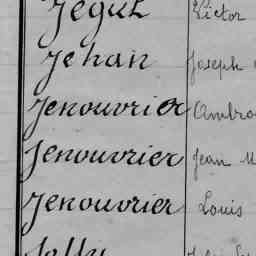 Jégut Victor
Jehan Joseph
Jenouvrier Ambro
Jenouvrier Jean M
Jenouvrier Louis
Jolly